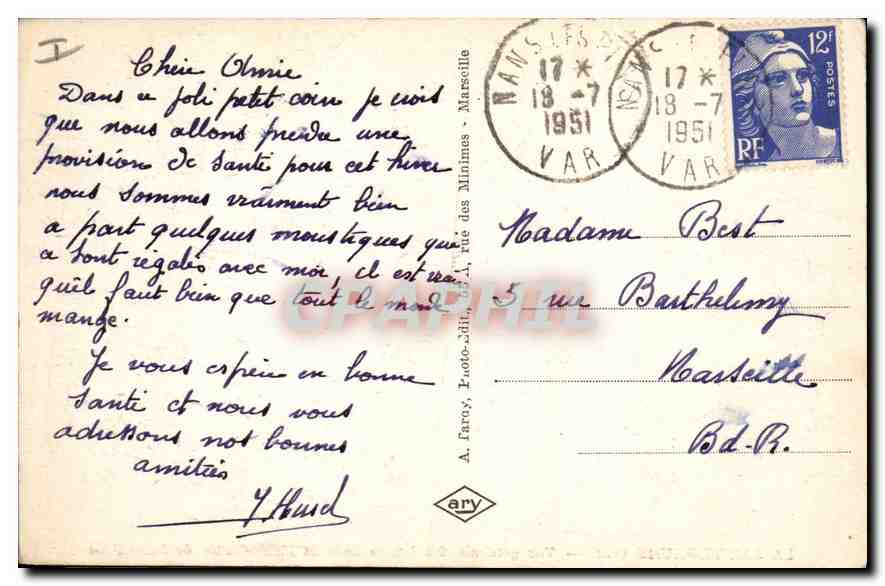 I
Chère Amie
Dans ce joli petit coin je crois
que nous allons prendre une
provision de santé pour cet hiver
nous sommes vraiment bien
a part quelques moustiques qui
se sont régalés avec moi, il est vrai
qu'il faut bien que tout le monde
mange.
Je vous espère en bonne
santé et nous vous
adressons nos bonnes
amitiés
A. Tardy, Photo-Edit., rue des Minimes - Marseille
ary
NANS LES
17 *
18 -7
1951
VAR
17 *
18 -7
1951
VAR
12F
POSTES
RF
Madame Best
5 rue Barthelemy
Marseille
Bd-R.
CPAPHIL